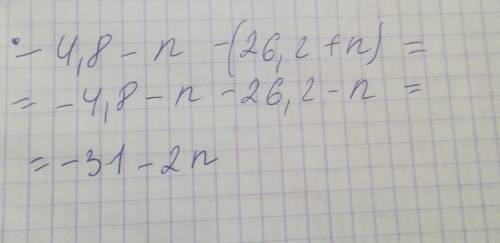 - 4,8 - n - (26,2 + n) =
= - 4,8 - n - 26,2 - n =
= - 31 - 2n